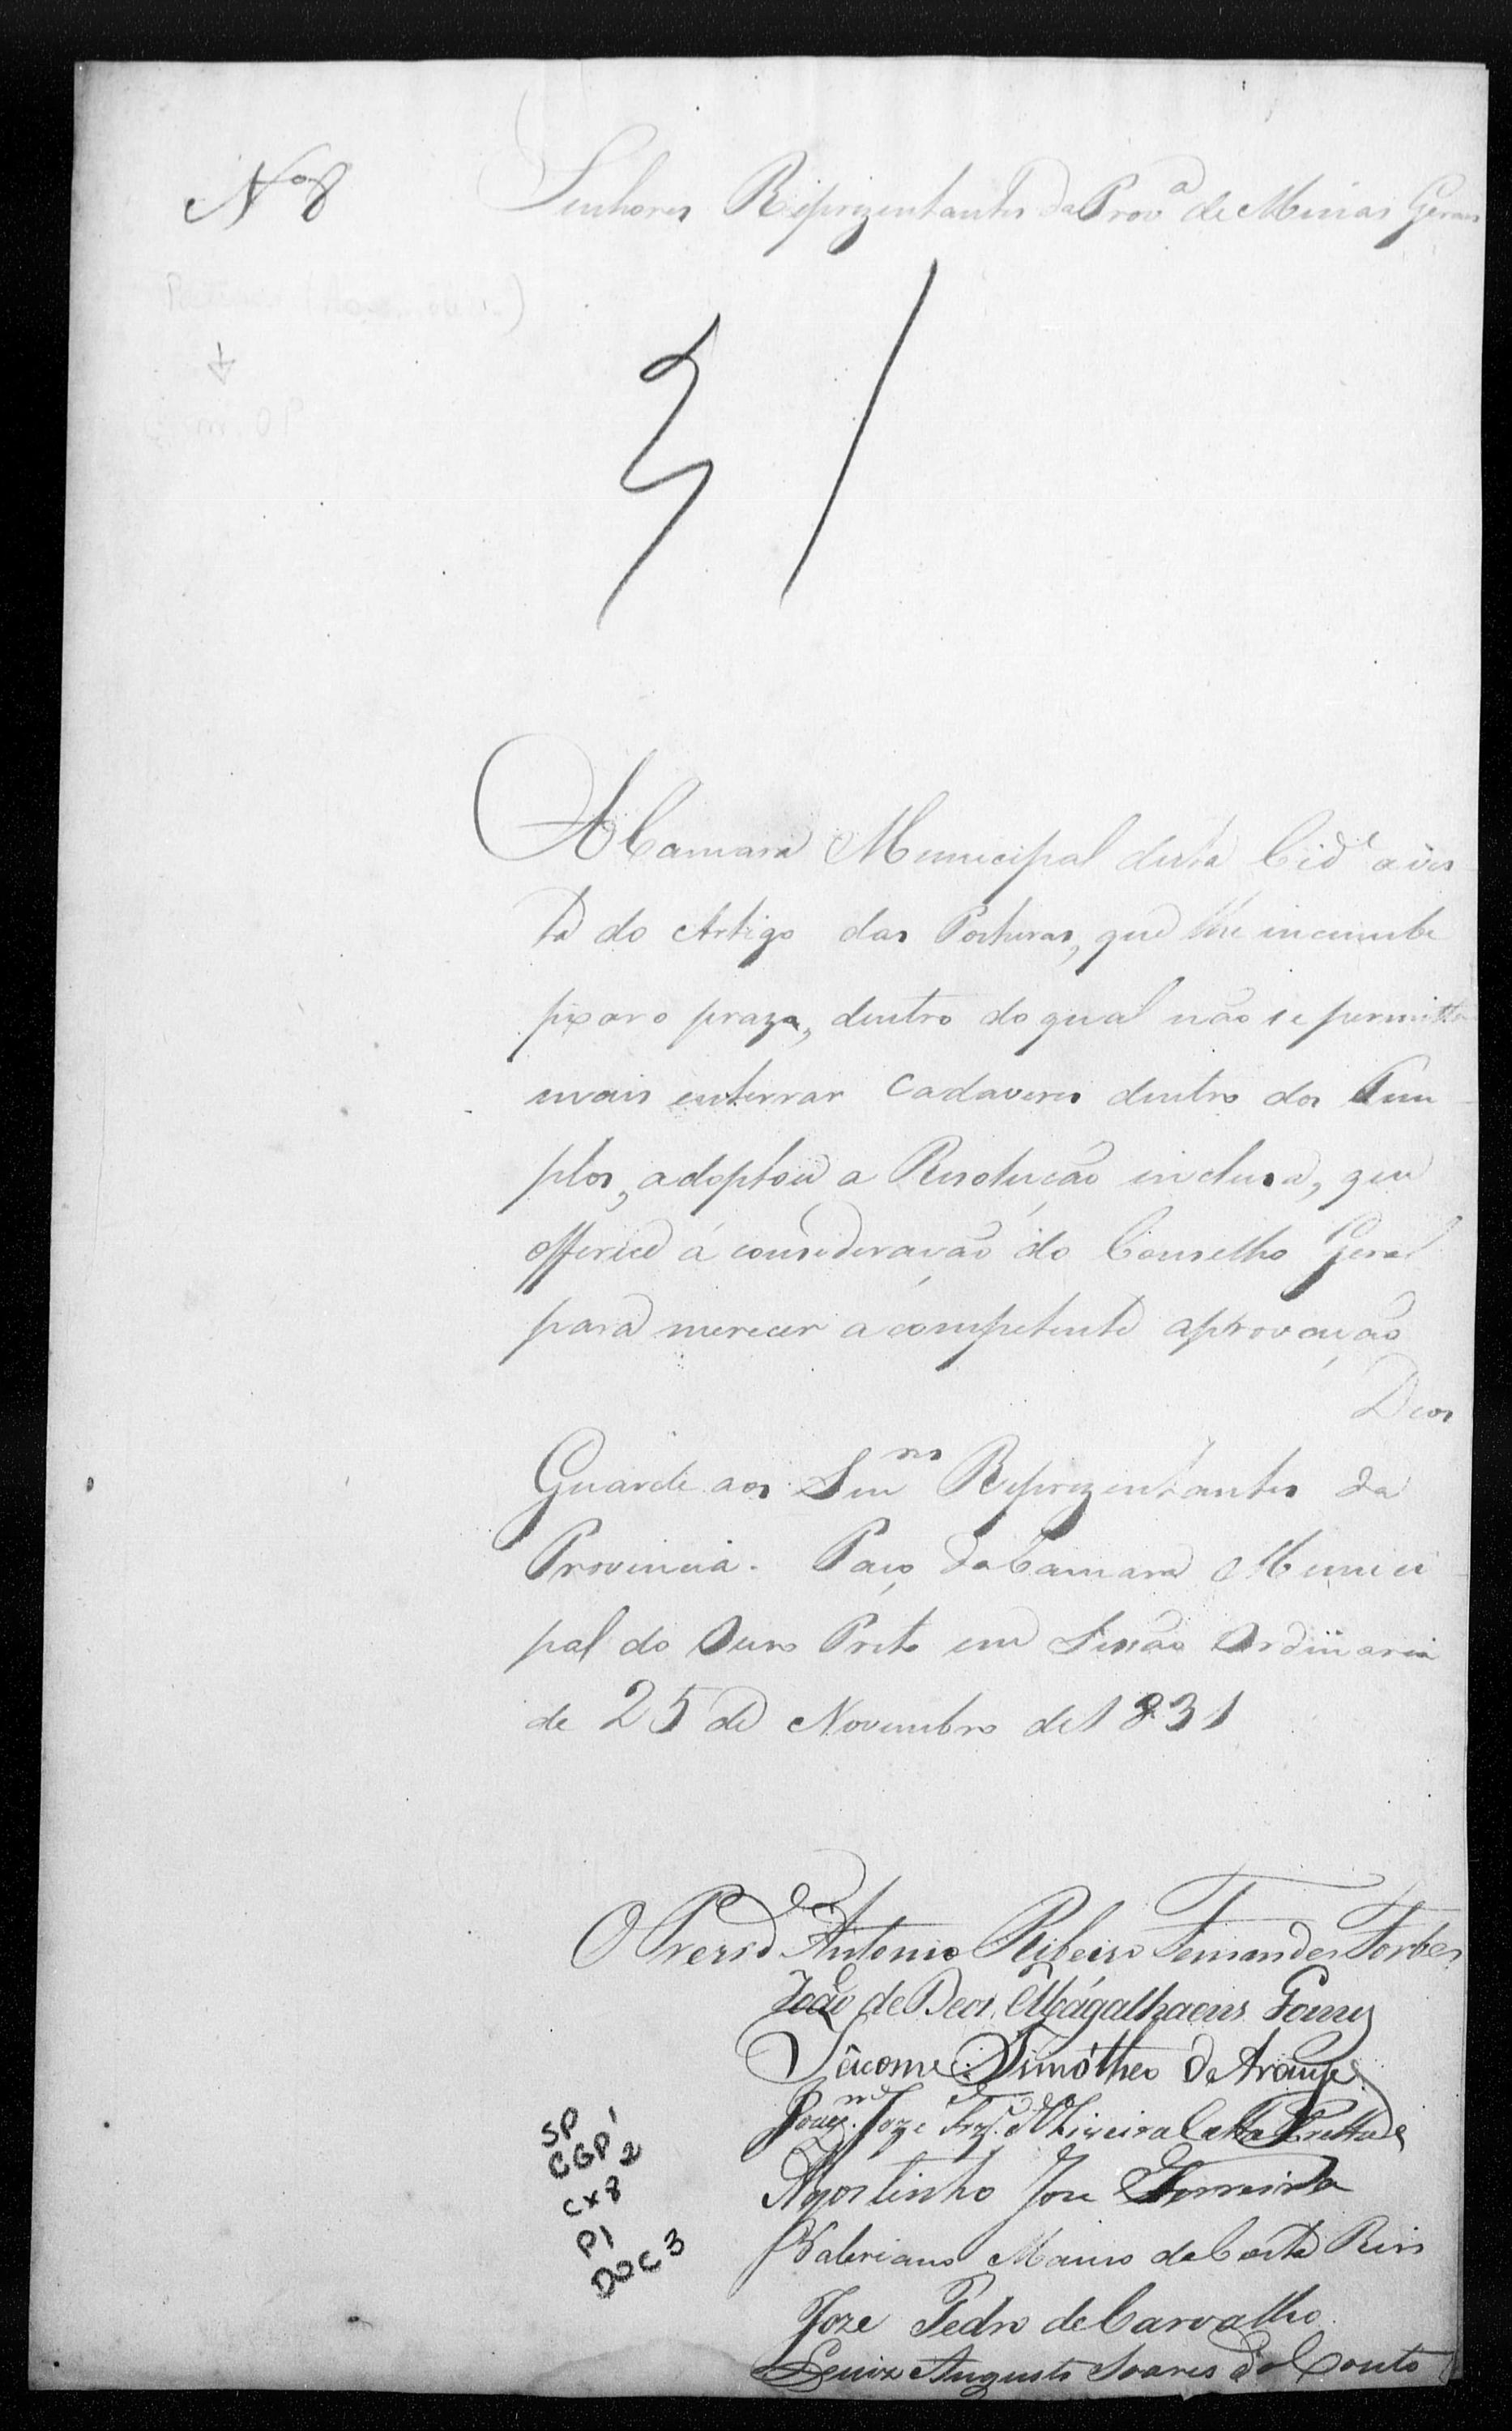 Nº 8
Senhores Reprezentantes da Provª de Minas Geraes
A Camara Municipal desta Cidᵉ a vis
ta do Artigo das Posturas, que lhe incumbe
fixar o prazo, dentro do qual não se permitte
mais enterrar cadaveres dentro dos Tem
plos, adoptou a Resolução inclusa, que
offerece á consideração do Conselho Geral
para merecer a competente aprovação
Deos
Guarde aos Senʳᵉˢ Reprezentantes da
Provincia. Paço da Camara Munici
pal do Ouro Preto em Sessão Ordinaria
de 25 de Novembro de 1831
O Prezidᵉ Antonio Ribeiro Fernandes Forbes
João de Deos Magalhaens Gomes
Jácome Timótheo de Araujo
Joze d'Oliveira Catta Pretta
Agostinho Jose Ferreira
Valeriano Manso da Costa Reis
Joze Pedro de Carvalho
Luiz Augusto Soares do Couto
SP
CGP' 2
CX8
P1
DOC 3